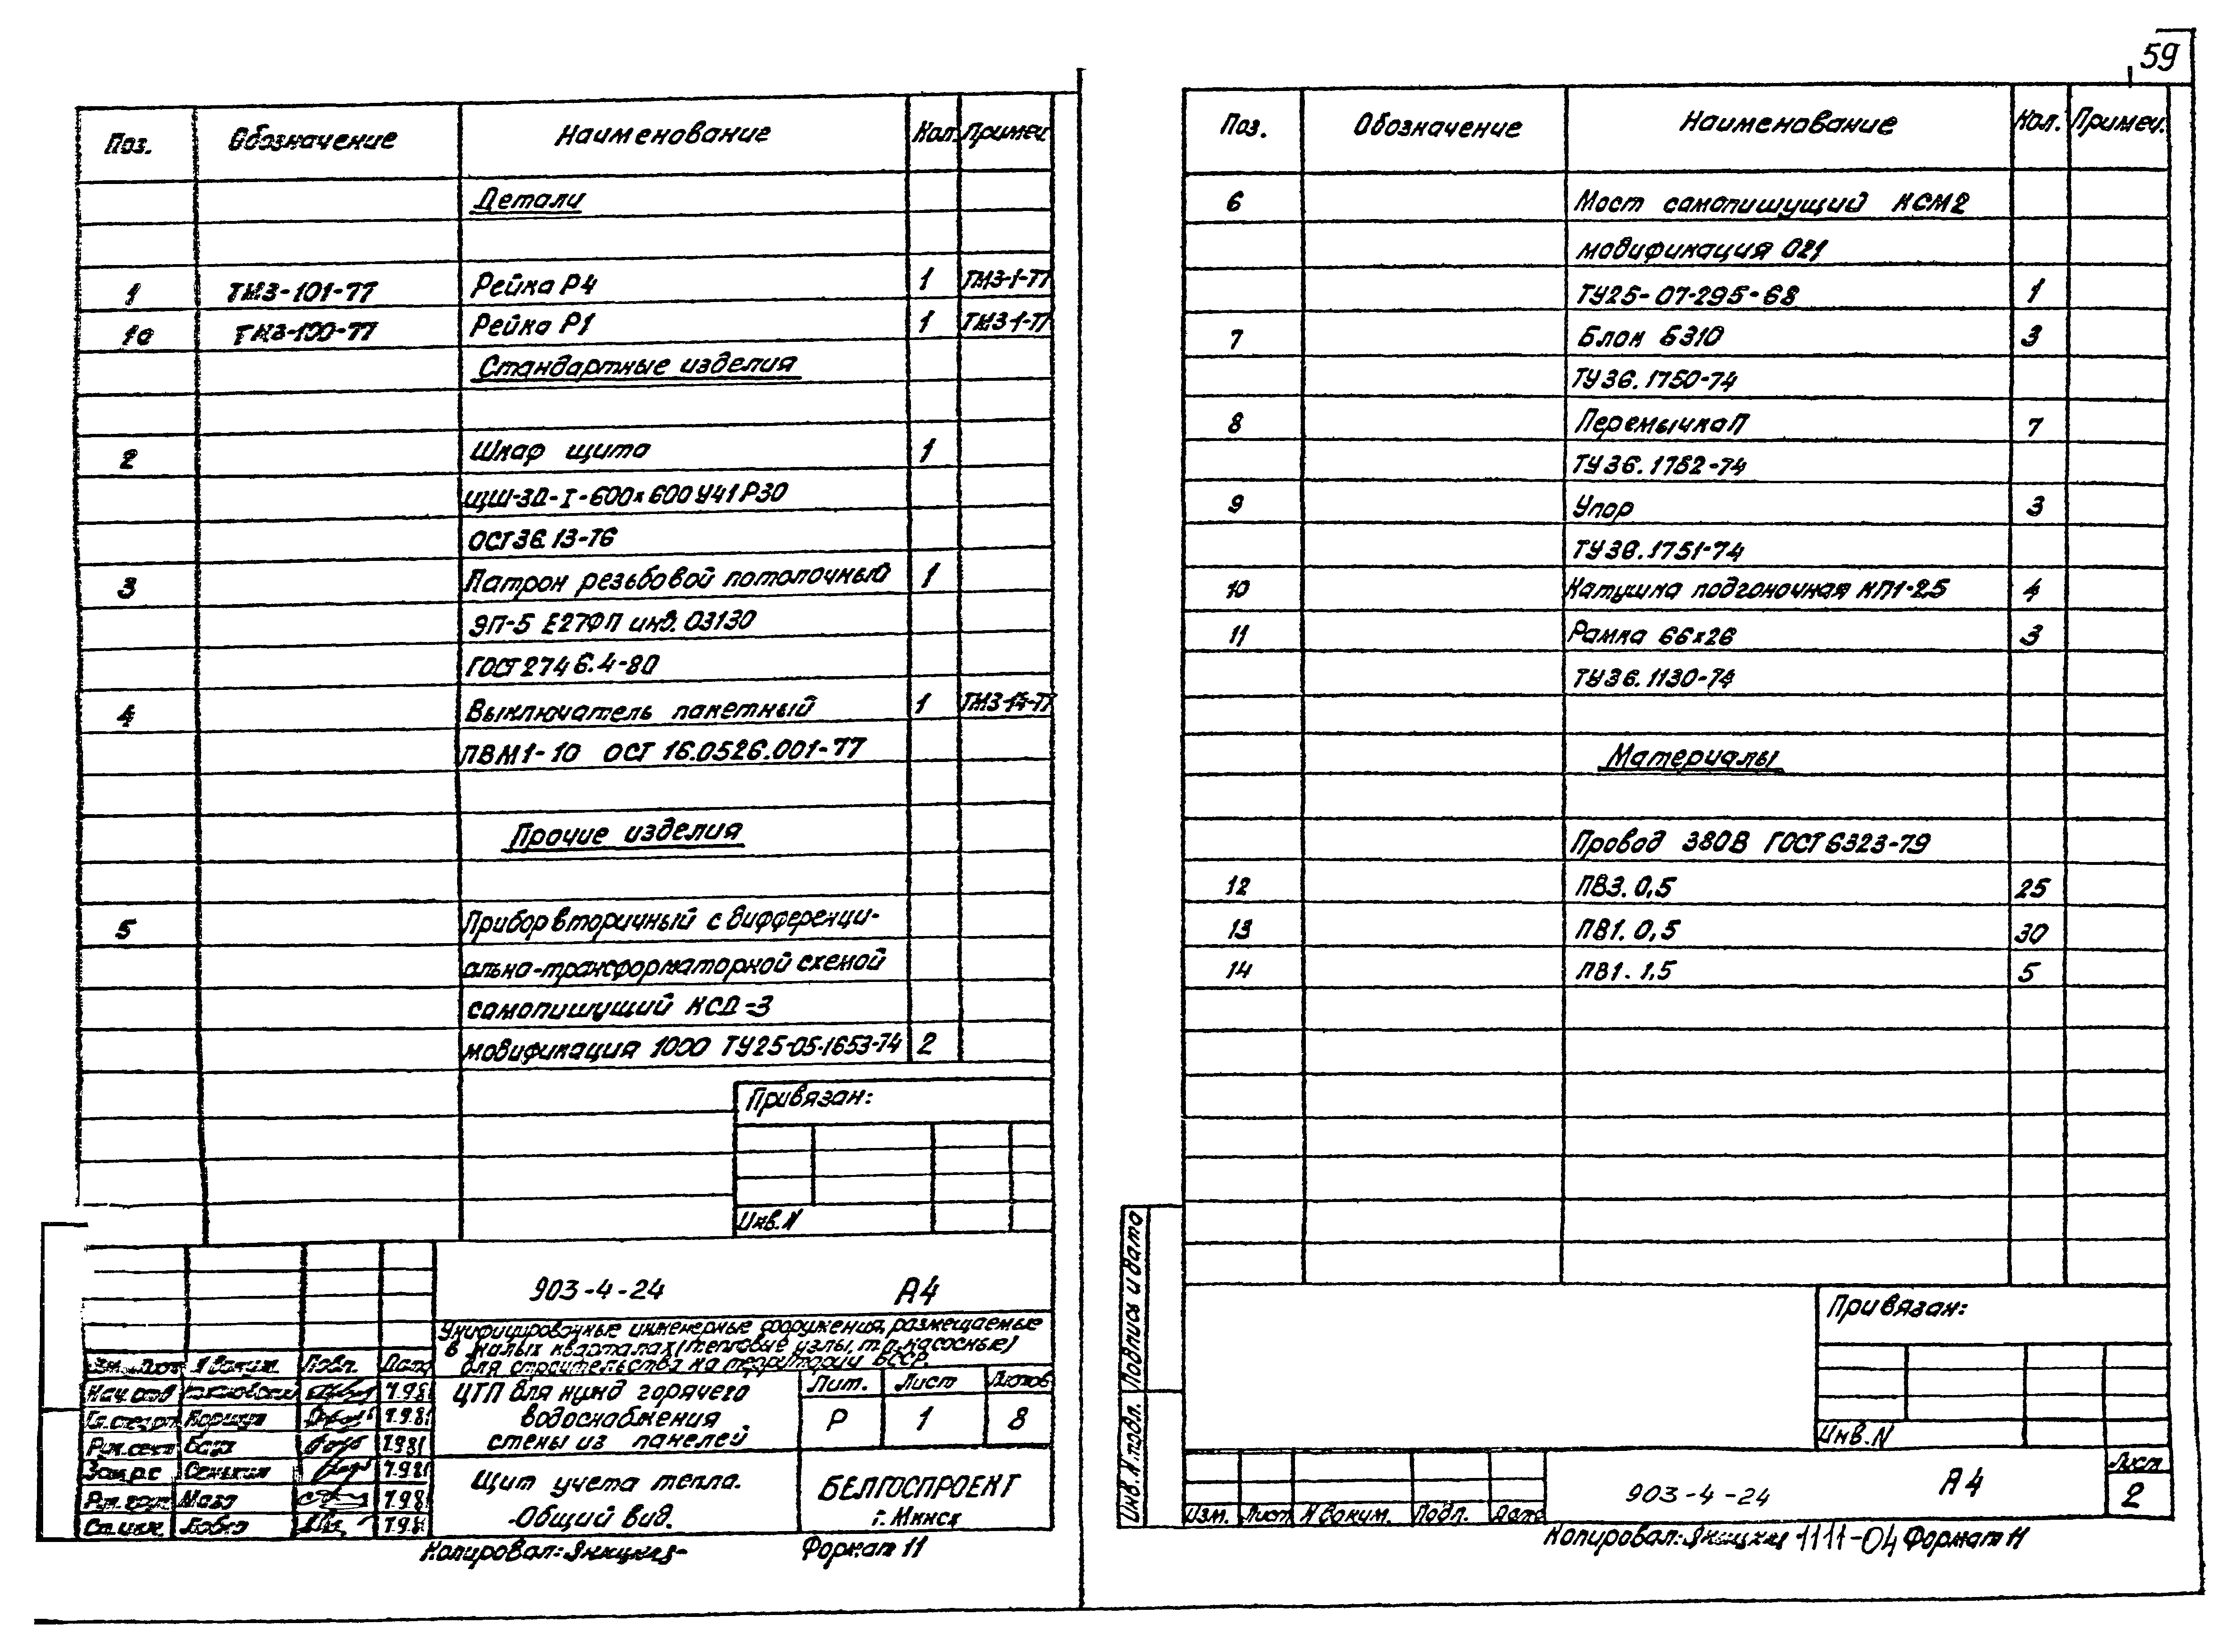 59
Поз. Обозначение Наименование Кол. Примеч.
Детали
1 ТМ3-101-77 Рейка Р4 1 ТМ3-1-77
1а ТМ3-100-77 Рейка Р1 1 ТМ3-1-77
Стандартные изделия
2 Шкаф щита 1
ЩШ-ЗД-I-600х600У41Р30
ОСТ36.13-76
3 Патрон резьбовой потолочный 1
ЭП-5 Е27ФП инд. 03130
ГОСТ2746.4-80
4 Выключатель пакетный 1 ТМ3-14-77
ПВМ1-10 ОСТ 16.0526.001-77
Прочие изделия
5 Прибор вторичный с дифференци-
ально-трансформаторной схемой
самопишущий КСД-3
модификация 1000 ТУ25-05.1653-74 2
Привязан:
Инв.N
903-4-24 А4
Унифицированные инженерные сооружения, размещаемые
в жилых кварталах (тепловые узлы, т.п. насосные)
для строительства на территории БССР.
Изм. Лист N докум. Подп. Дата
Нач. отд 7.981
7.981
Рук. сект 7.981
7.981
7.981
Ст. инж. 7.981
ЦТП для нужд горячего
водоснабжения
стены из панелей
Лит. Лист Листов
Р 1 8
Щит учета тепла.
Общий вид.
БЕЛГОСПРОЕКТ
г. Минск
Копировал: Формат 11
Поз. Обозначение Наименование Кол. Примеч.
6 Мост самопишущий КСМ2
модификация 021
ТУ25-07-295-68 1
7 Блок Б310 3
ТУ36.1750-74
8 Перемычка П 7
ТУ36.1752-74
9 Упор 3
ТУ36.1751-74
10 Катушка подгоночная КП1-2,5 4
11 Рамка 66х26 3
ТУ36.1130-74
Материалы
Провод 380В ГОСТ 6323-79
12 ПВ3. 0,5 25
13 ПВ1. 0,5 30
14 ПВ1. 1,5 5
Привязан:
Инв.N
Инв. N подл. Подпись и дата
Изм. Лист N докум. Подп. Дата
903-4-24 А4
Лист
2
Копировал: 1111-04 Формат 11